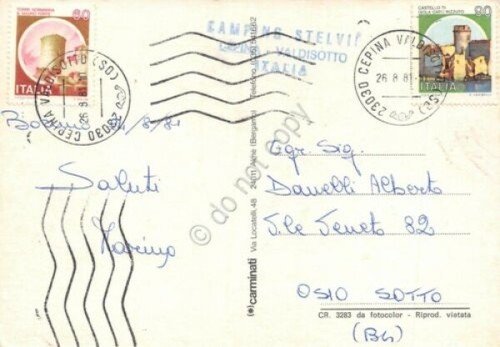 80
ITALIA
23030 CEPINA VALDISOTTO (SO)
26.8.81
CAMPING STELVIO
CEPINA VALDISOTTO
ITALIA
23030 CEPINA VALDISOTTO (SO)
26.8.81
CASTELLO DI
ISOLA CAPO RIZZUTO
80
ITALIA
/8/81
Saluti
Egr. Sig.
Danelli Alberto
V.le Veneto 82
OSIO SOTTO
(BG)
(•)carminati Via Locatelli, 48 24011 Alme (Bergamo)
do not copy
CR. 3283 da fotocolor - Riprod. vietata